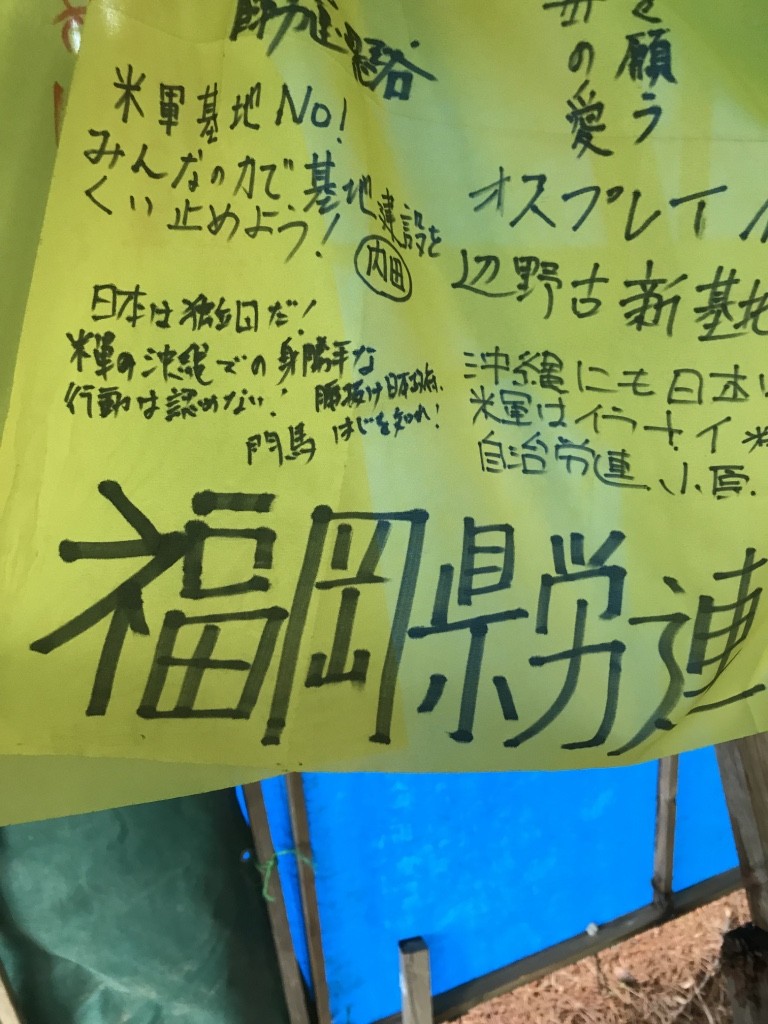 を願う
の愛
米軍基地No!
みんなの力で基地建設を
くい止めよう!
内田
オスプレイ
辺野古新基地
日本は独立国だ!
米軍の沖縄での身勝手な
行動は認めない! 腰抜け日本政府、
はじを知れ!
門馬
沖縄にも日本に
米軍はイラナイ
自治労連 小原
福岡県労連